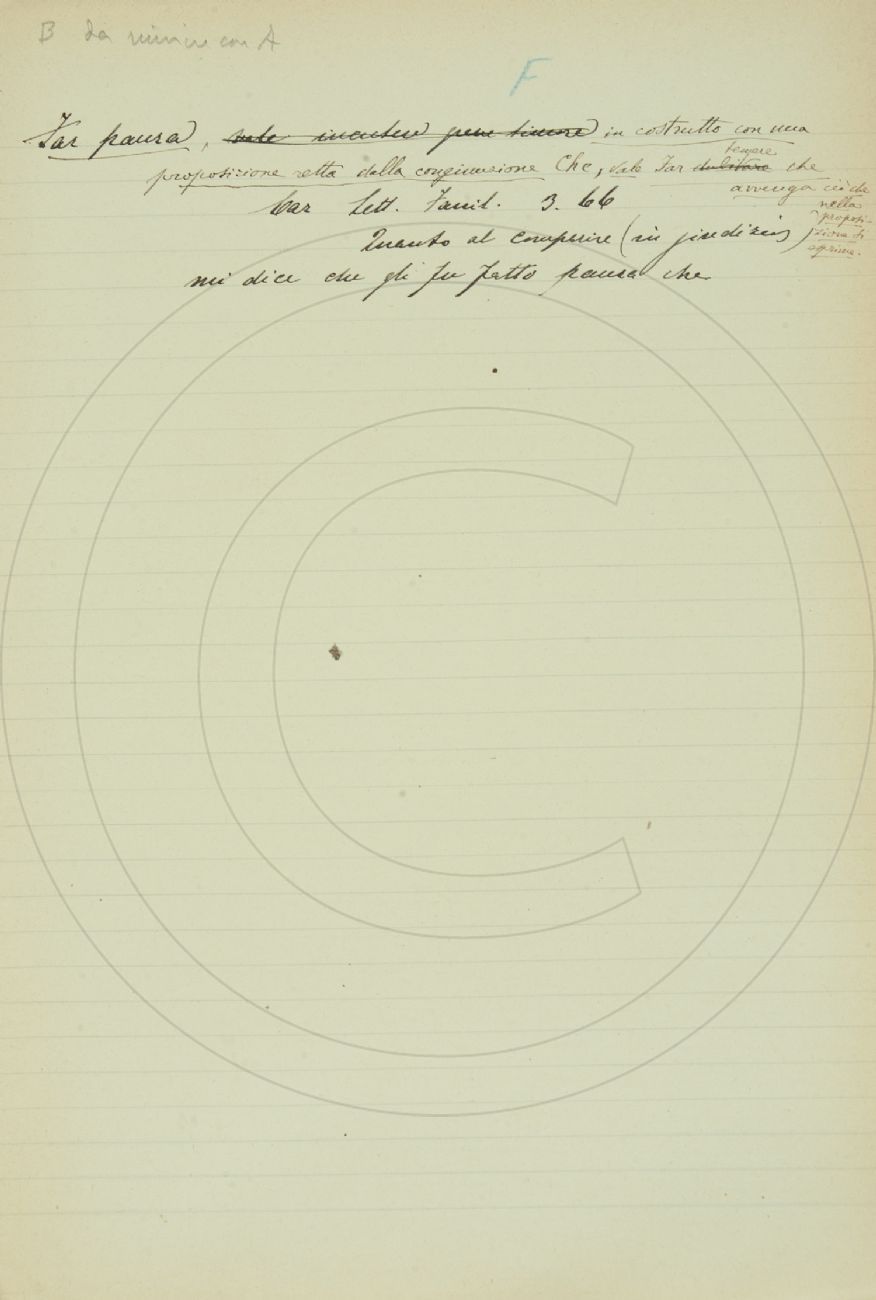 B da unire con A
F
Far paura, vale incutere timore in costrutto con una
proposizione retta dalla congiunzione Che, vale Far dubitare che
temere
avvenga ciò che
nella
proposi-
zione si
esprime.
Car Lett. Famil. 3. 66
Quanto al comparire (in giudizio)
mi dice che gli fu fatto paura che